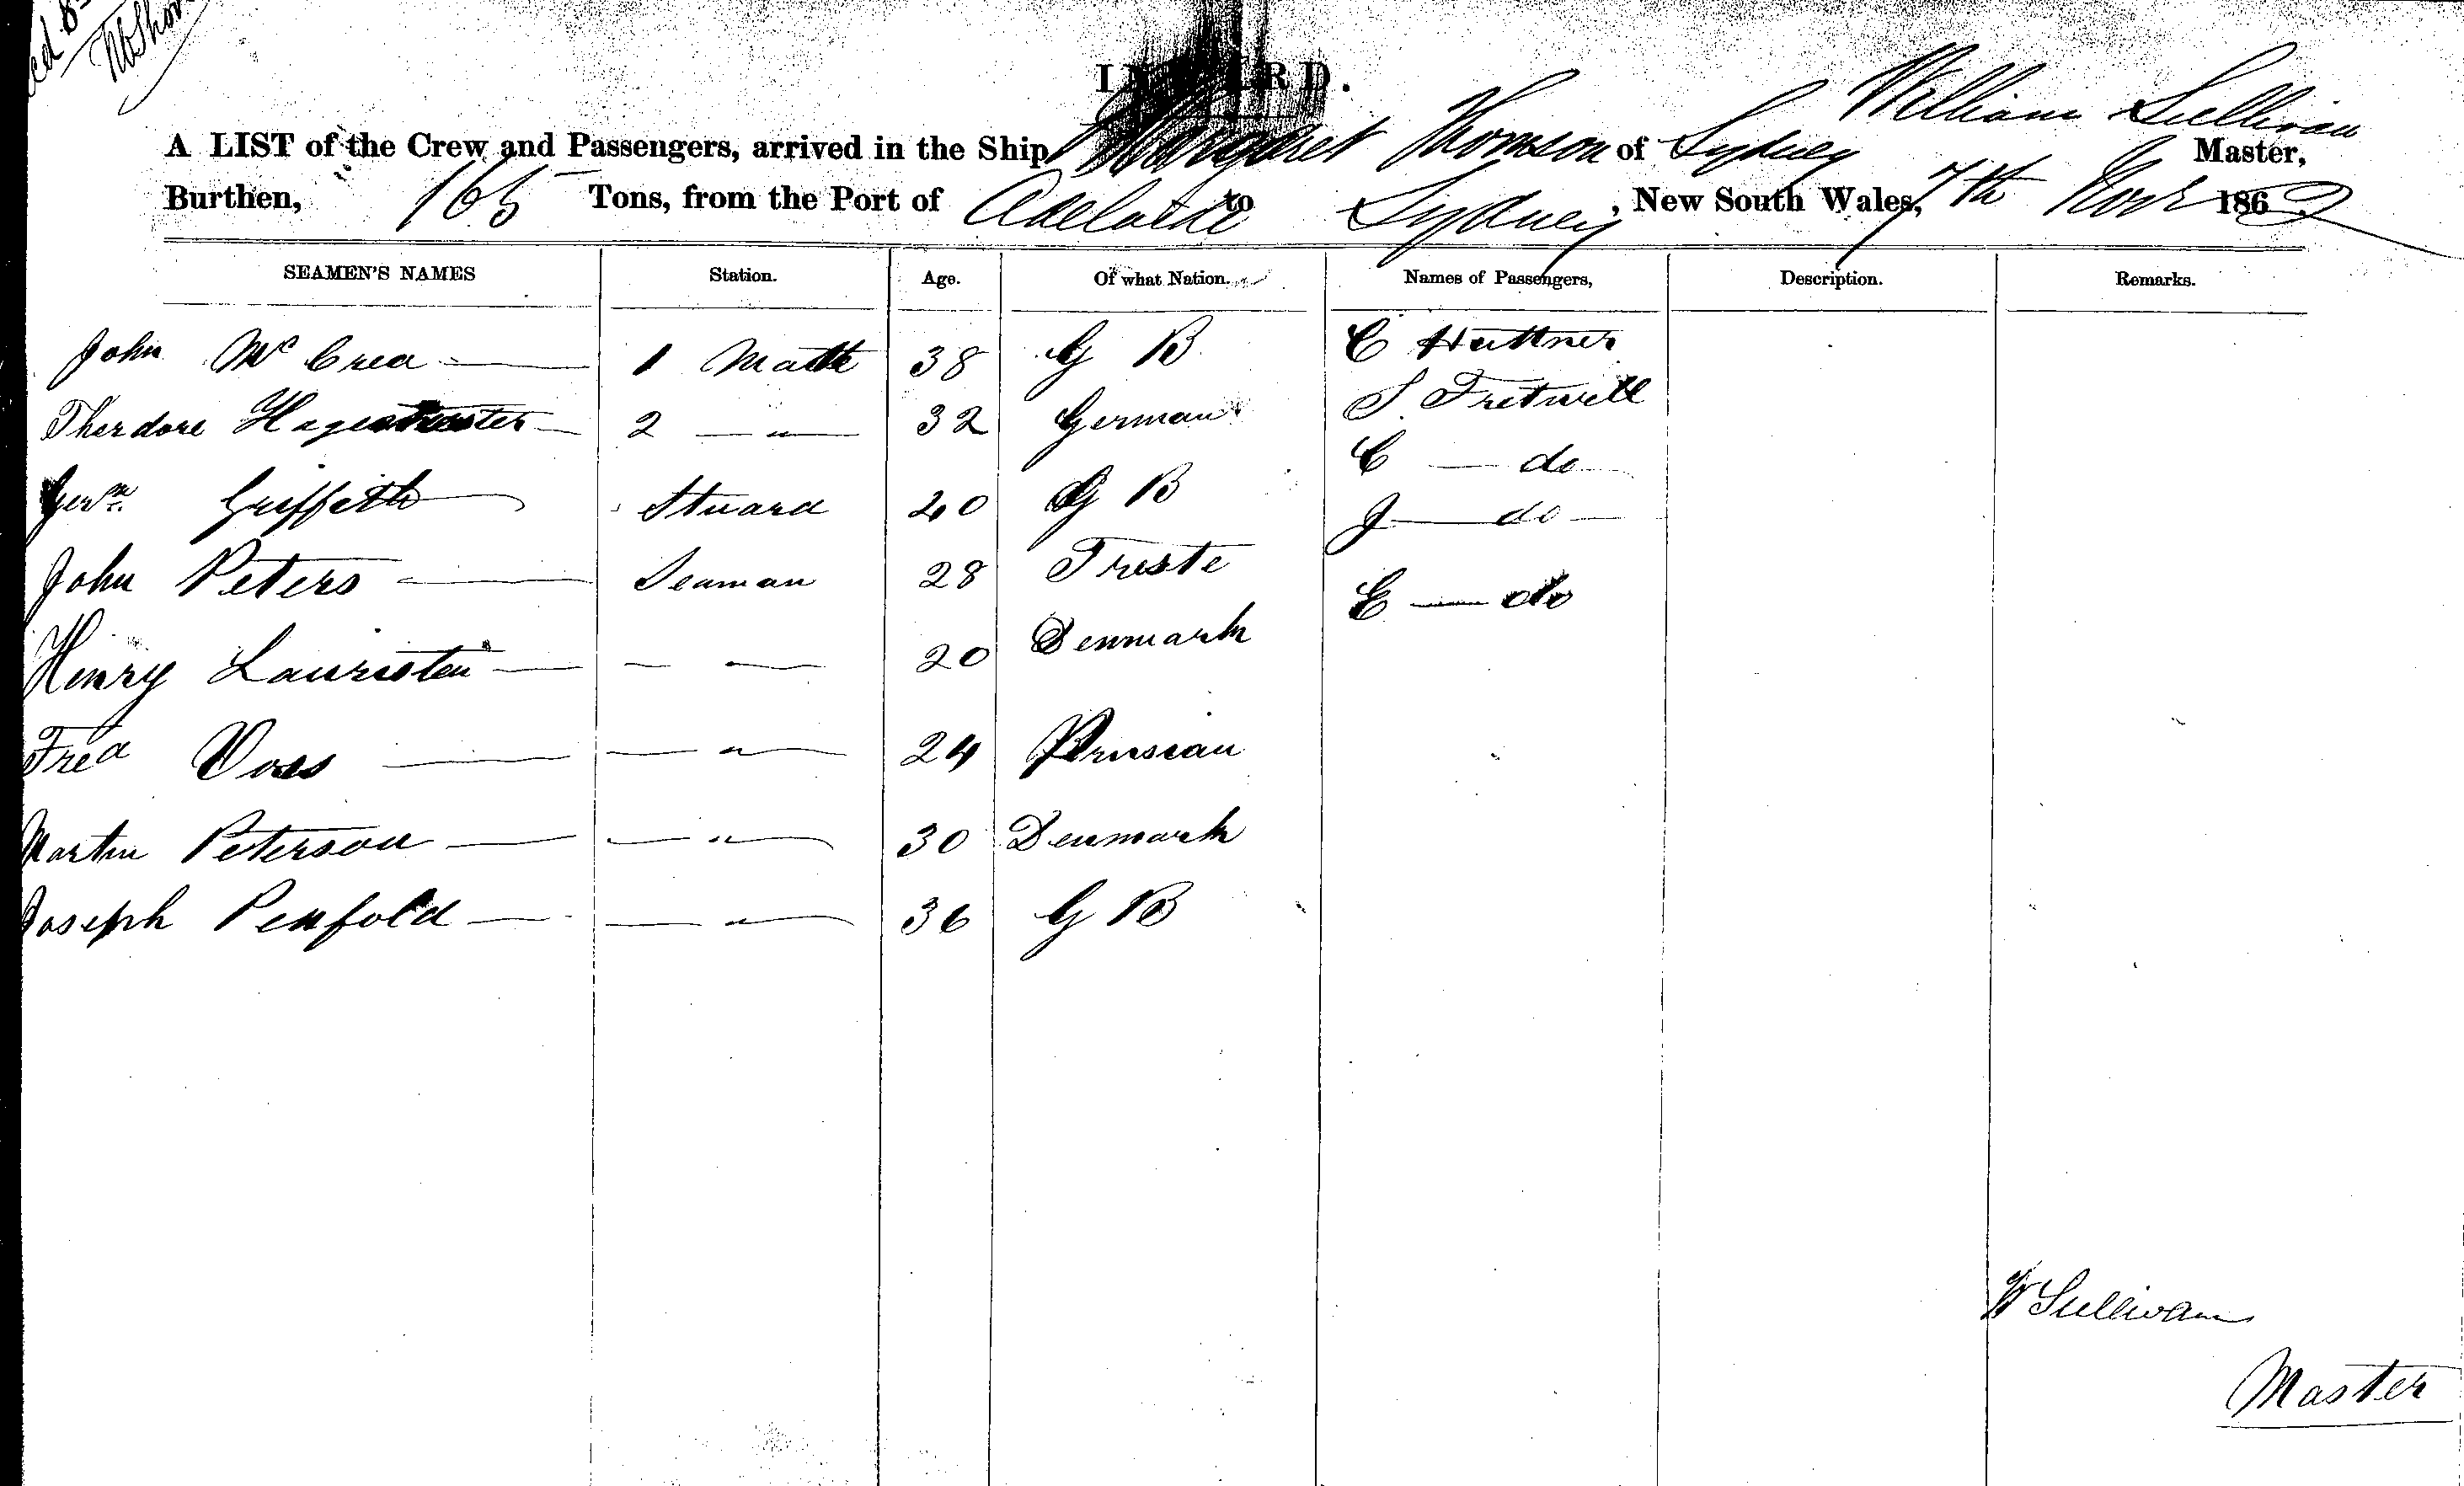 INWARD.
William Sullivan
A LIST of the Crew and Passengers, arrived in the Ship Margaret Thomson of Sydney Master,
Burthen, 165 Tons, from the Port of Adelaide to Sydney, New South Wales, 7th Novr 1862
SEAMEN'S NAMES Station. Age. Of what Nation. Names of Passengers, Description. Remarks.
John McCrea 1 Mate 38 G B C Huttner
Theodore 2 — " — 32 German S. Fretwell
C — do
Griffith Stuard 40 G B J — do —
John Peters Seaman 28 Trieste
E — do
Henry Lauristen — — 20 Denmark
Fred Voss — " — 24 Prussian
Martin Peterson — " — 30 Denmark
Joseph Penfold — " — 36 G B
W Sullivan
Master